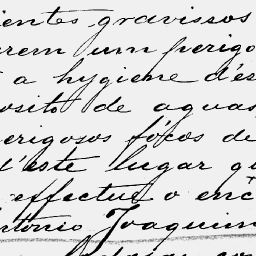 ientes gravissos
arem um perigo
a hygiene d'es
osito de aguas
erigosos fócos de
d'este lugar qu
effectue o enc
ntonio Joaquim